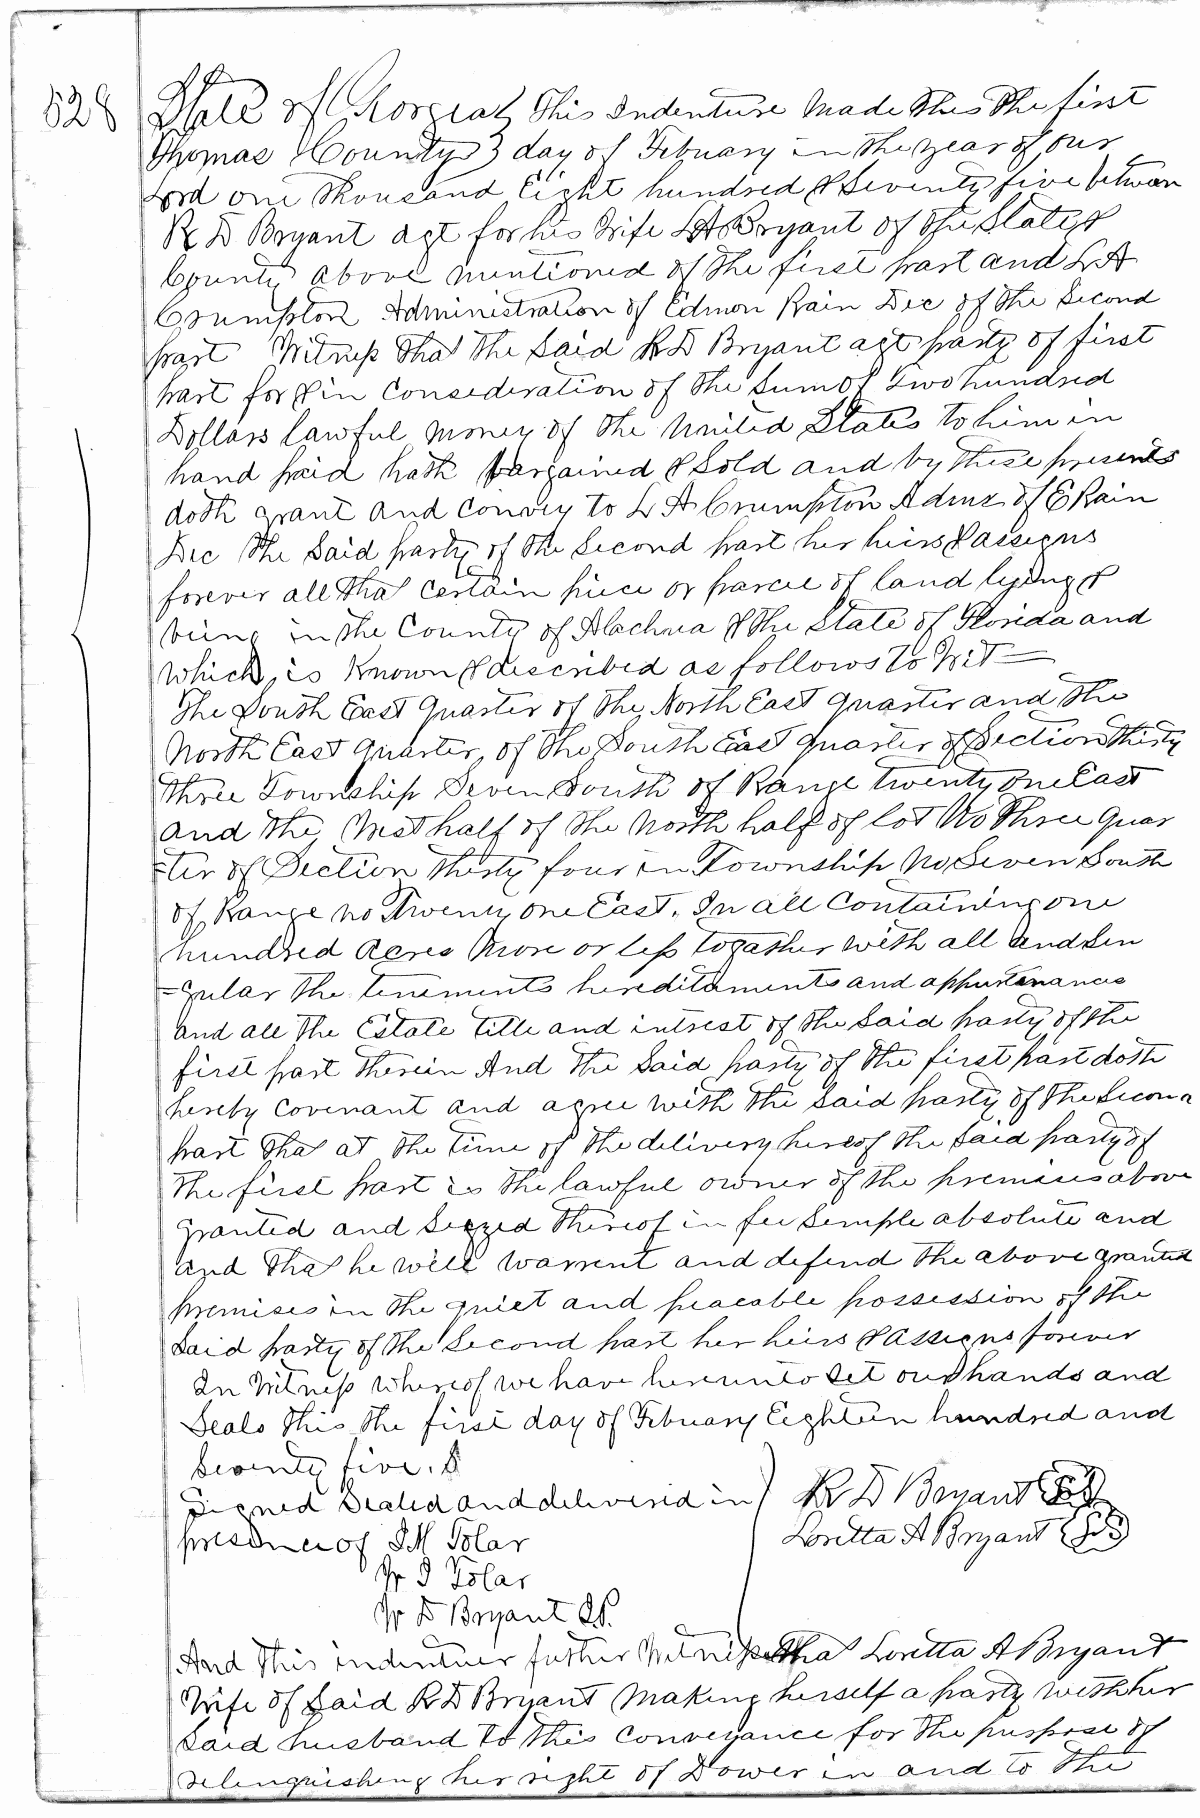 528
State of Georgia } This Indenture Made this the first
Thomas County } day of Febuary in the year of our
Lord one thousand Eight hundred & Seventy five between
R D Bryant agt for his Wife L A Bryant of the State &
County above mentioned of the first part and L A
Crumpton Administration of Edmon Rain Dec of the Second
part Witness that the Said R D Bryant agt party of first
part for & in Consideration of the Sum of Two hundred
Dollars lawful money of the United States to him in
hand paid hath bargained & Sold and by these presents
doth grant and convey to L A Crumpton Admr of E Rain
Dec the Said party of the Second part her heirs & assigns
forever all that certain piece or parcel of land lying &
being in the County of Alachua & the State of Florida and
which is Known & described as follows to Wit
The South East Quarter of the North East Quarter and the
North East Quarter of the South East Quarter of Section thirty
three Township Seven South of Range twenty one East
and the West half of the North half of lot No Three Quar
=ter of Section thirty four in Township No Seven South
of Range no Twenty one East. In all Containing one
hundred acres More or less togather with all and Sin
=gular the tenements hereditaments and appurtenances
and all the Estate title and intrest of the Said party of the
first part therein And the Said party of the first part doth
hereby covenant and agree with the Said party of the Second
part that at the time of the delivery hereof the Said party of
the first part is the lawful owner of the premises above
granted and Seized thereof in fee Simple absolute and
and that he will warrent and defend the above granted
premises in the quiet and peacable possession of the
Said party of the Second part her heirs & Assigns forever
In Witness whereof we have hereunto Set our hands and
Seals this the first day of Febuary Eighteen hundred and
Seventy five.
Signed Sealed and delivered in } R D Bryant (LS)
presence of J M Tolar Loretta A Bryant (LS)
W J Tolar
W D Bryant J.P.
And this indentuer futher Witness that Loretta A Bryant
Wife of Said R D Bryant Making herself a party with her
Said husband to this Conveyance for the purpose of
relinquishing her right of Dower in and to the